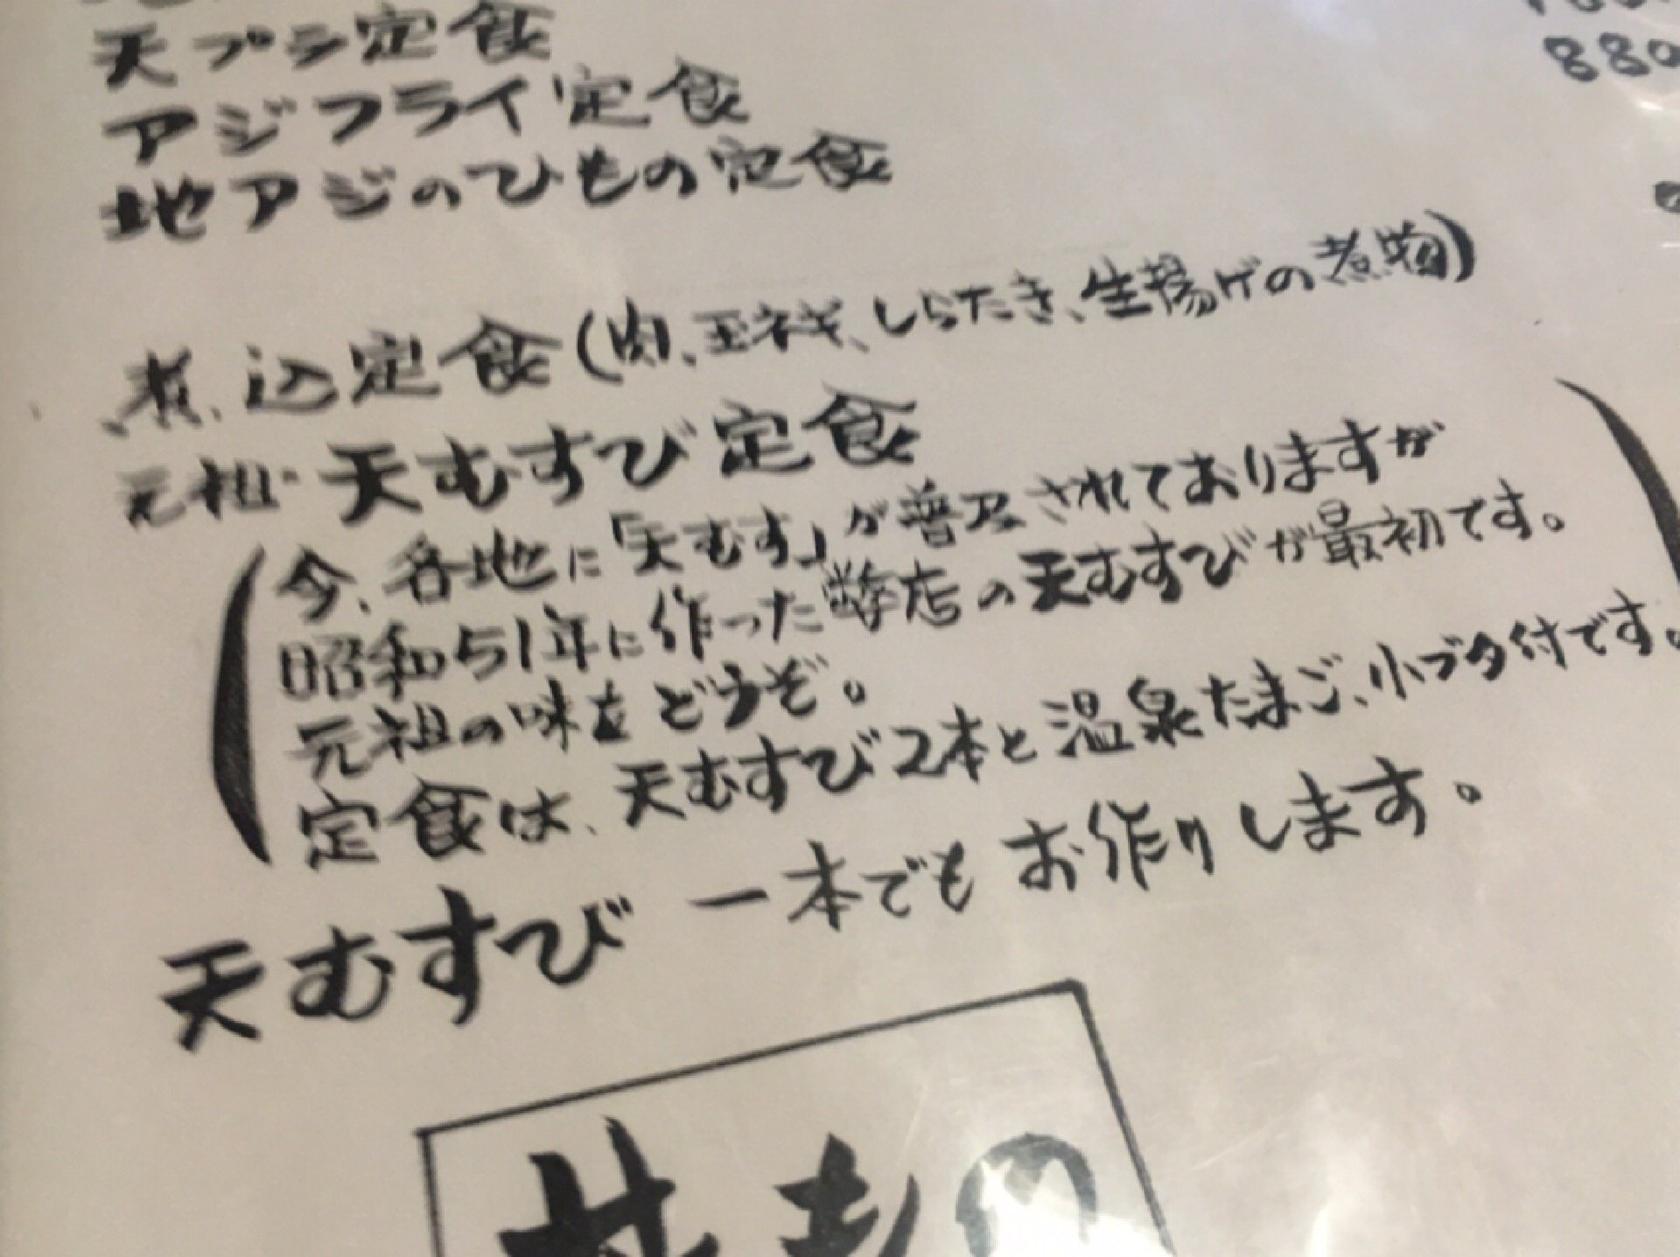 天プラ定食
880
アジフライ定食
地アジのひもの定食
煮込定食(肉、玉ネギ、しらたき、生揚げの煮物)
元祖・天むすび定食
(今、各地に「天むす」が普及されておりますが
昭和51年に作った弊店の天むすびが最初です。
元祖の味をどうぞ。
定食は、天むすび2本と温泉たまご、小ブタ付です。)
天むすび 一本でもお作りします。
丼もの